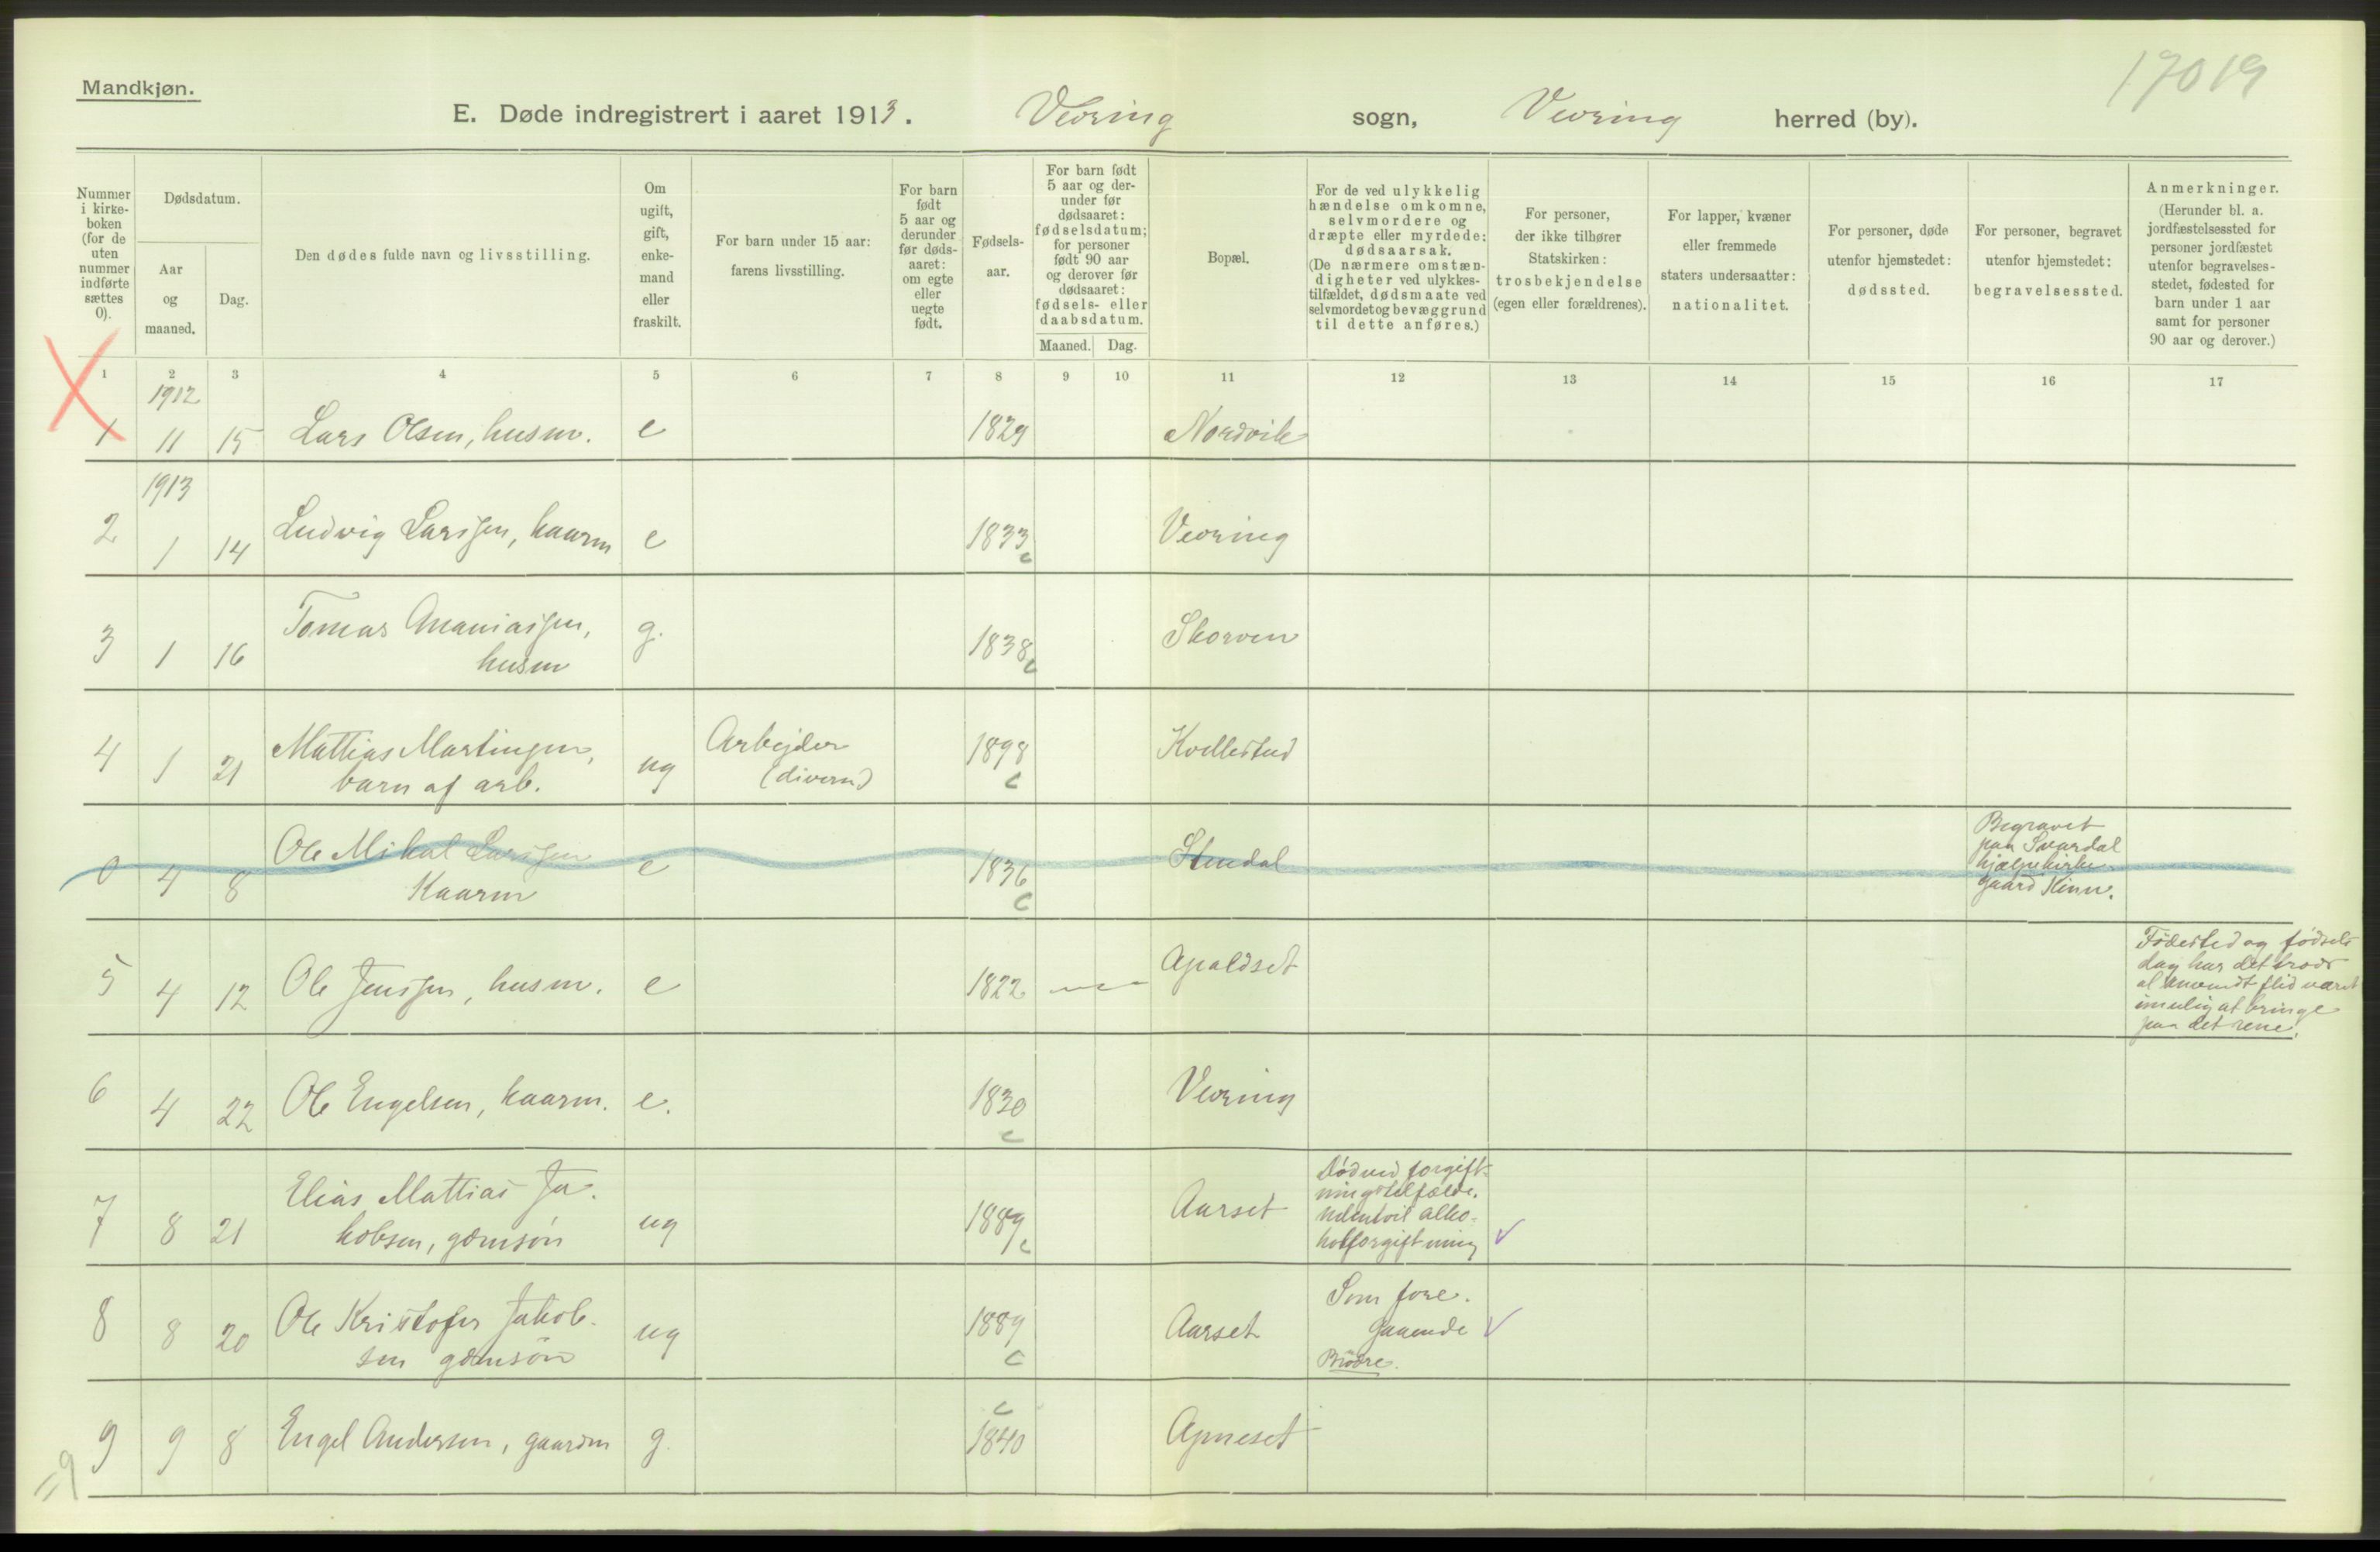 17019
Mandkjøn.
E. Døde indregistrert i aaret 1913. Vevring sogn, Vevring herred (by).
Nummer i kirke-boken (for de uten nummer indførte sættes 0).
Dødsdatum.
Aar og maaned.
Dag.
Den dødes fulde navn og livsstilling.
Om ugift, gift, enke-mand eller fraskilt.
For barn under 15 aar: farens livsstilling.
For barn født 5 aar og derunder før døds-aaret: om egte eller uegte født.
Fødsels-aar.
For barn født 5 aar og der-under før dødsaaret: fødselsdatum; for personer født 90 aar og derover før dødsaaret: fødsels- eller daabsdatum.
Maaned. Dag.
Bopæl.
For de ved ulykkelig hændelse omkomne, selvmordere og dræpte eller myrdede: dødsaarsak. (De nærmere omstæn-digheter ved ulykkes-tilfældet, dødsmaate ved selvmordet og bevæggrund til dette anføres.)
For personer, der ikke tilhører Statskirken: trosbekjendelse (egen eller forældrenes).
For lapper, kvæner eller fremmede staters undersaatter: nationalitet.
For personer, døde utenfor hjemstedet: dødssted.
For personer, begravet utenfor hjemstedet: begravelsessted.
Anmerkninger. (Herunder bl. a. jordfæstelsessted for personer jordfæstet utenfor begravelses-stedet, fødested for barn under 1 aar samt for personer 90 aar og derover.)
1 2 3 4 5 6 7 8 9 10 11 12 13 14 15 16 17
1912
1 11 15 Lars Olsen, husm. e 1829 Nordvik
1913
2 1 14 Ludvig Larssen, kaarm e 1833 c Vevring
3 1 16 Tomas Ananiassen, g. 1838 c Skorven
husm
4 1 21 Mattias Martinssen, ug Arbejder 1898 Kvellestad
barn af arb. (diverse) c
0 4 8 Ole Mikal Larssen e 1836 Stendal Begravet
Kaarm c paa Svardal
hjælpekirke-
gaard Kinn.
5 4 12 Ole Jenssen, husm. e 1822 Apaldset Fødested og fødsels
dag har det trods
al anvendt flid været
umulig at bringe
paa det rene.
6 4 22 Ole Engelsen, kaarm. e. 1830 c Vevring
7 8 21 Elias Mattias Ja- ug 1889 c Aarset Død ved forgift-
kobsen, gdmsøn ningstilfælde.
udentvil alko-
holforgiftning
8 8 20 Ole Kristofer Jakob- ug 1889 c Aarset Som fore-
sen gdmsøn gaaende
Brødre.
9 9 8 Engel Andersen, gaardm g. c 1840 Apneset
=9